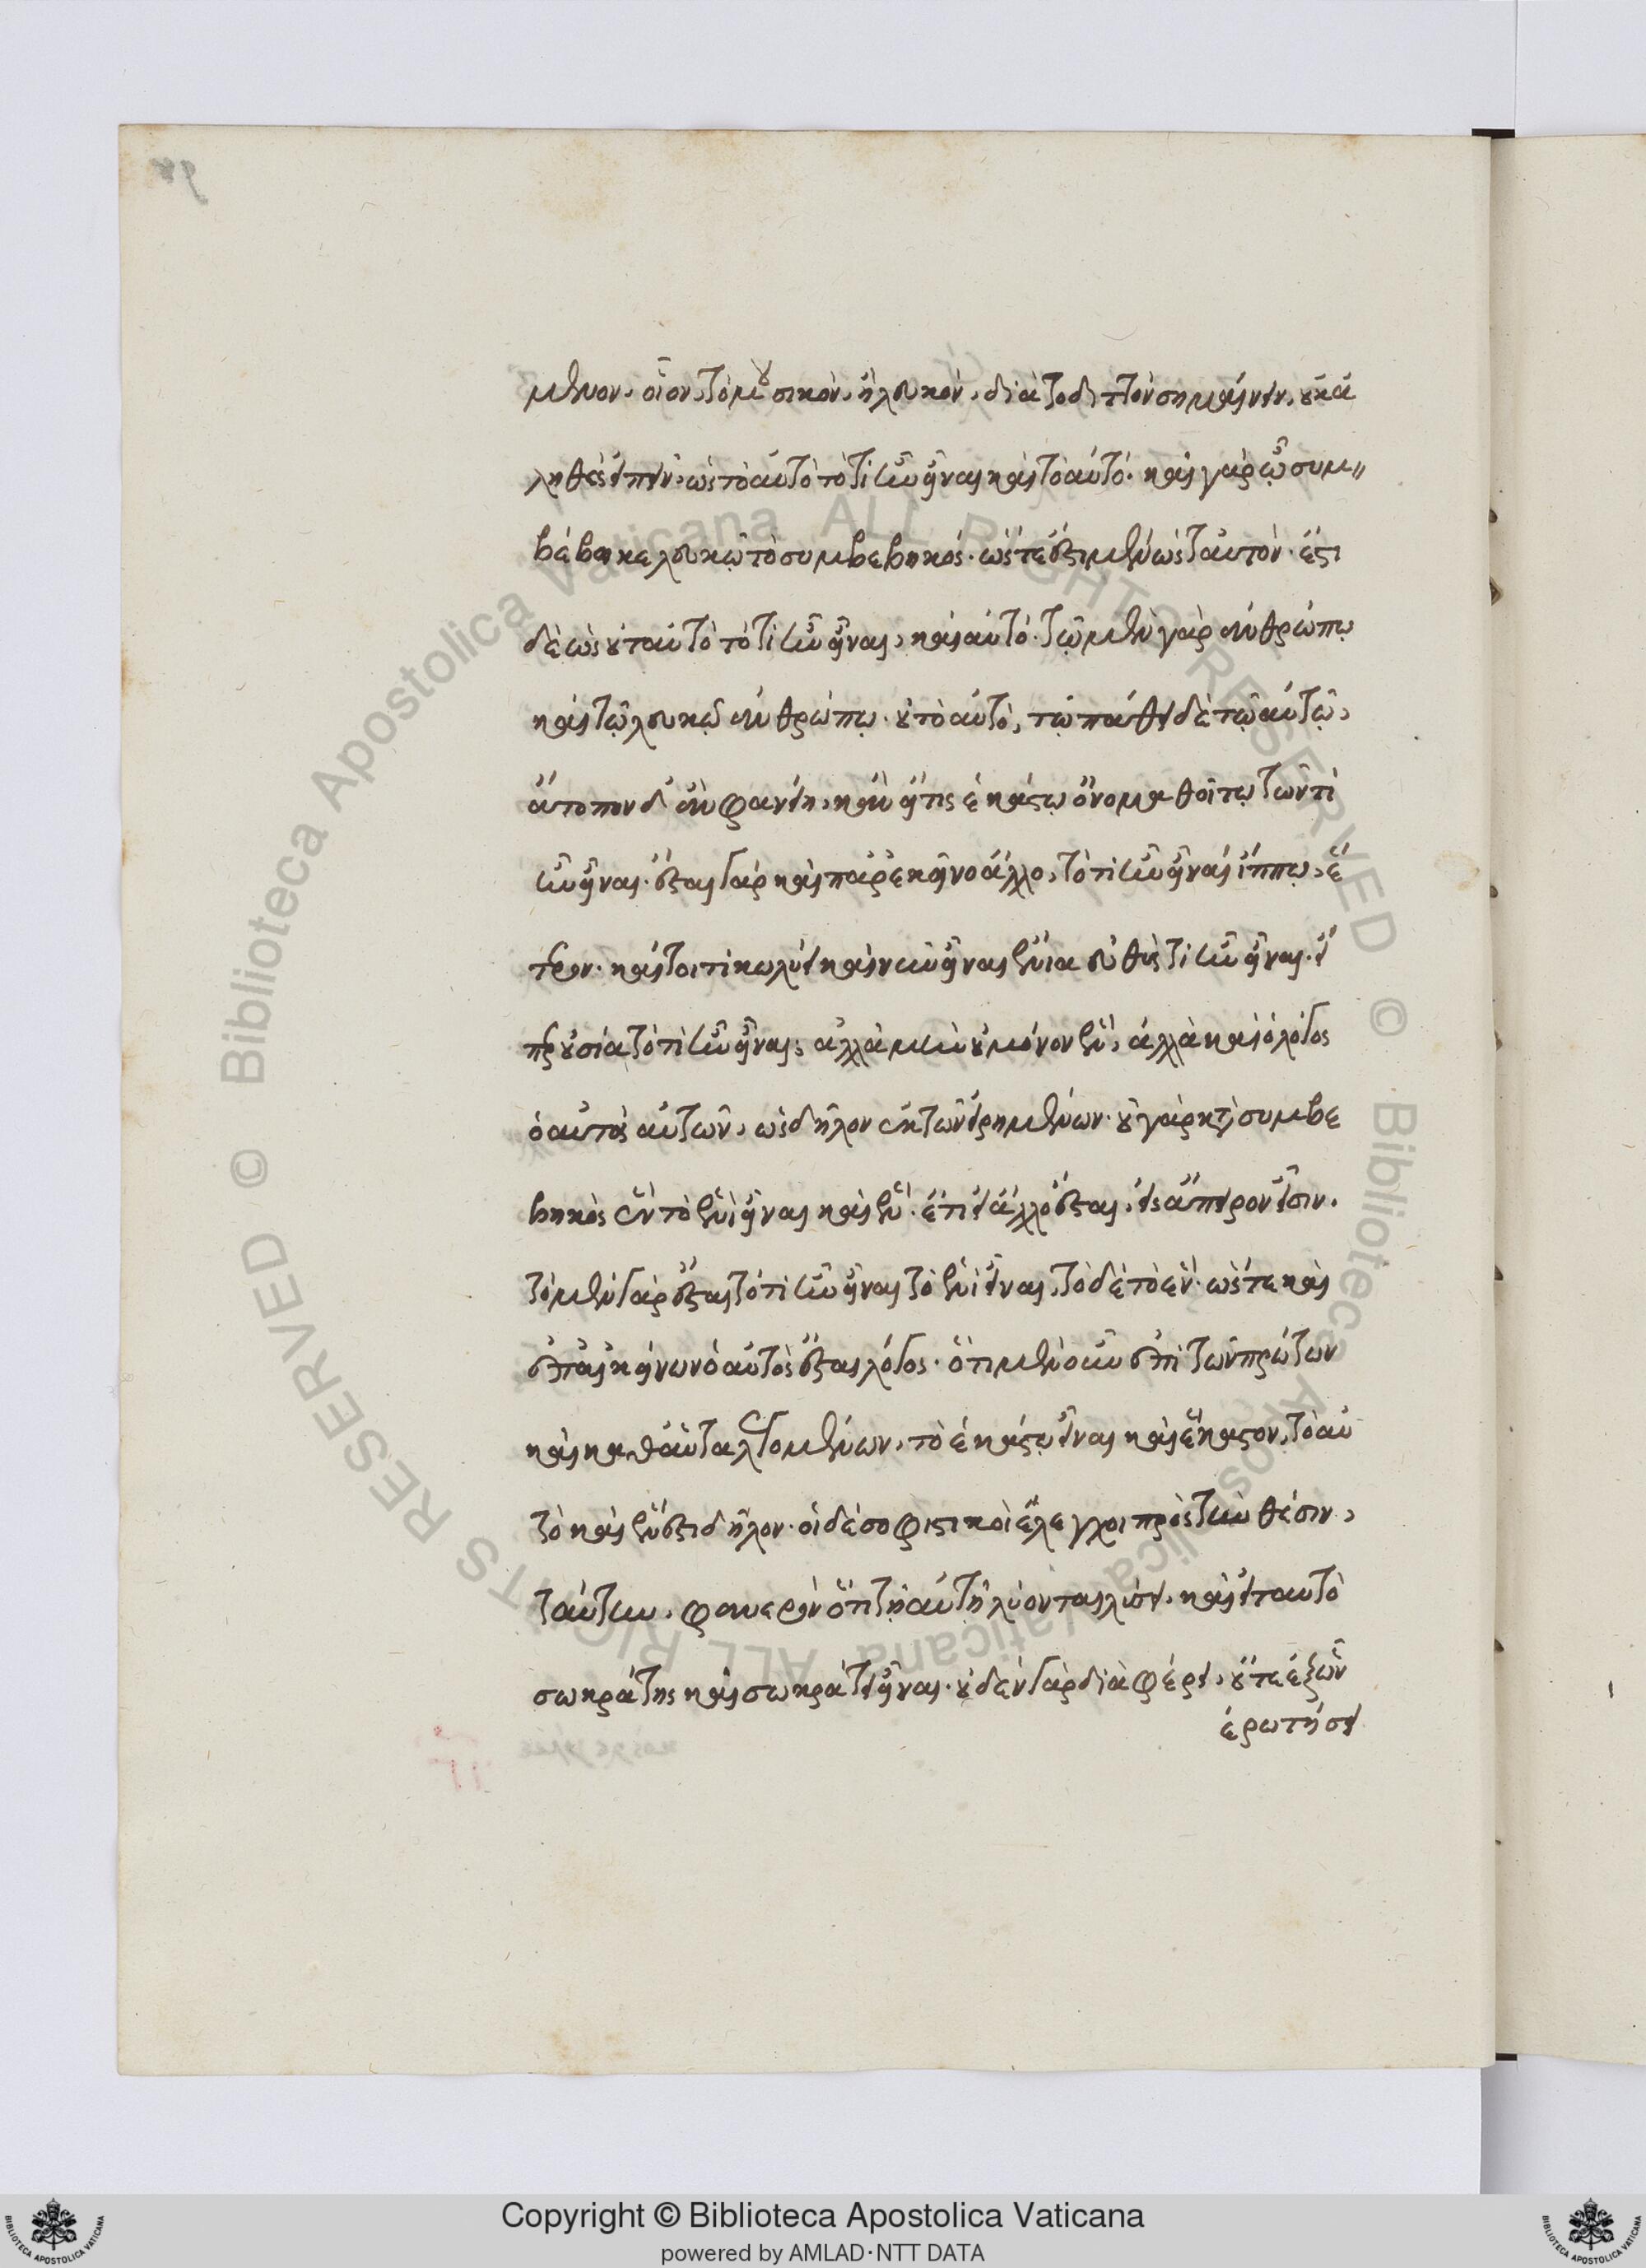 μενον, οἷον, τὸ μουσικὸν, ἢ λευκὸν, διὰ τὸ διττὸν σημαίνειν, οὐκ ἀ
ληθὲς εἰπεῖν· ὡς τὸ αὐτὸ τὸ τί ἦν εἶναι καὶ τὸ αὐτό. καὶ γὰρ ᾧ συμ
βέβηκε λευκῷ τὸ συμβεβηκός· ὥστε ἔστι μὲν ὡς ταυτὸν· ἔστι
δὲ ὡς οὐ ταὐτὸ τὸ τί ἦν εἶναι, καὶ αὐτό· τῷ μὲν γὰρ ἀνθρώπῳ
καὶ τῷ λευκῷ ἀνθρώπῳ· οὐ τὸ αὐτὸ, τῷ πάθει δὲ τῷ αὐτῷ,
ἄτοπον δ' ἂν φανείη, κἂν εἴ τις ἑκάστῳ ὄνομα θοῖτο τῶν τί
ἦν εἶναι· ἔσται γὰρ καὶ παρ' ἐκεῖνο ἄλλο, τὸ τί ἦν εἶναι ἵππῳ, ἕ
τερον· καίτοι τί κωλύει καὶ νῦν εἶναι ἔνια εὐθὺς τί ἦν εἶναι· εἴ
περ οὐσία τὸ τί ἦν εἶναι; ἀλλὰ μὴν οὐ μόνον ἓν, ἀλλὰ καὶ ὁ λόγος
ὁ αὐτὸς αὐτῶν, ὡς δῆλον ἐκ τῶν εἰρημένων· οὐ γὰρ κατὰ συμβε
βηκὸς ἓν τὸ ἑνὶ εἶναι καὶ ἕν· ἔτι εἰ ἄλλο ἔσται, εἰς ἄπειρον εἶσιν.
τὸ μὲν γὰρ ἔσται τὸ τί ἦν εἶναι τὸ ἑνὶ εἶναι, τὸ δὲ τὸ ἕν· ὥστε καὶ
ἐπ' ἐκείνων ὁ αὐτὸς ἔσται λόγος· ὅτι μὲν οὖν ἐπὶ τῶν πρώτων
καὶ καθ' αὑτὰ λεγομένων, τὸ ἑκάστῳ εἶναι καὶ ἕκαστον, τὸ αὐ
τὸ καὶ ἕν ἐστι δῆλον· οἱ δὲ σοφιστικοὶ ἔλεγχοι πρὸς τὴν θέσιν,
ταύτην, φανερὸν ὅτι τῇ αὐτῇ λύονται λύσει, καὶ εἰ ταυτὸ
σωκράτης καὶ σωκράτει εἶναι· οὐδὲν γὰρ διαφέρει, οὔτε ἐξ ὧν
ἐρωτήσει